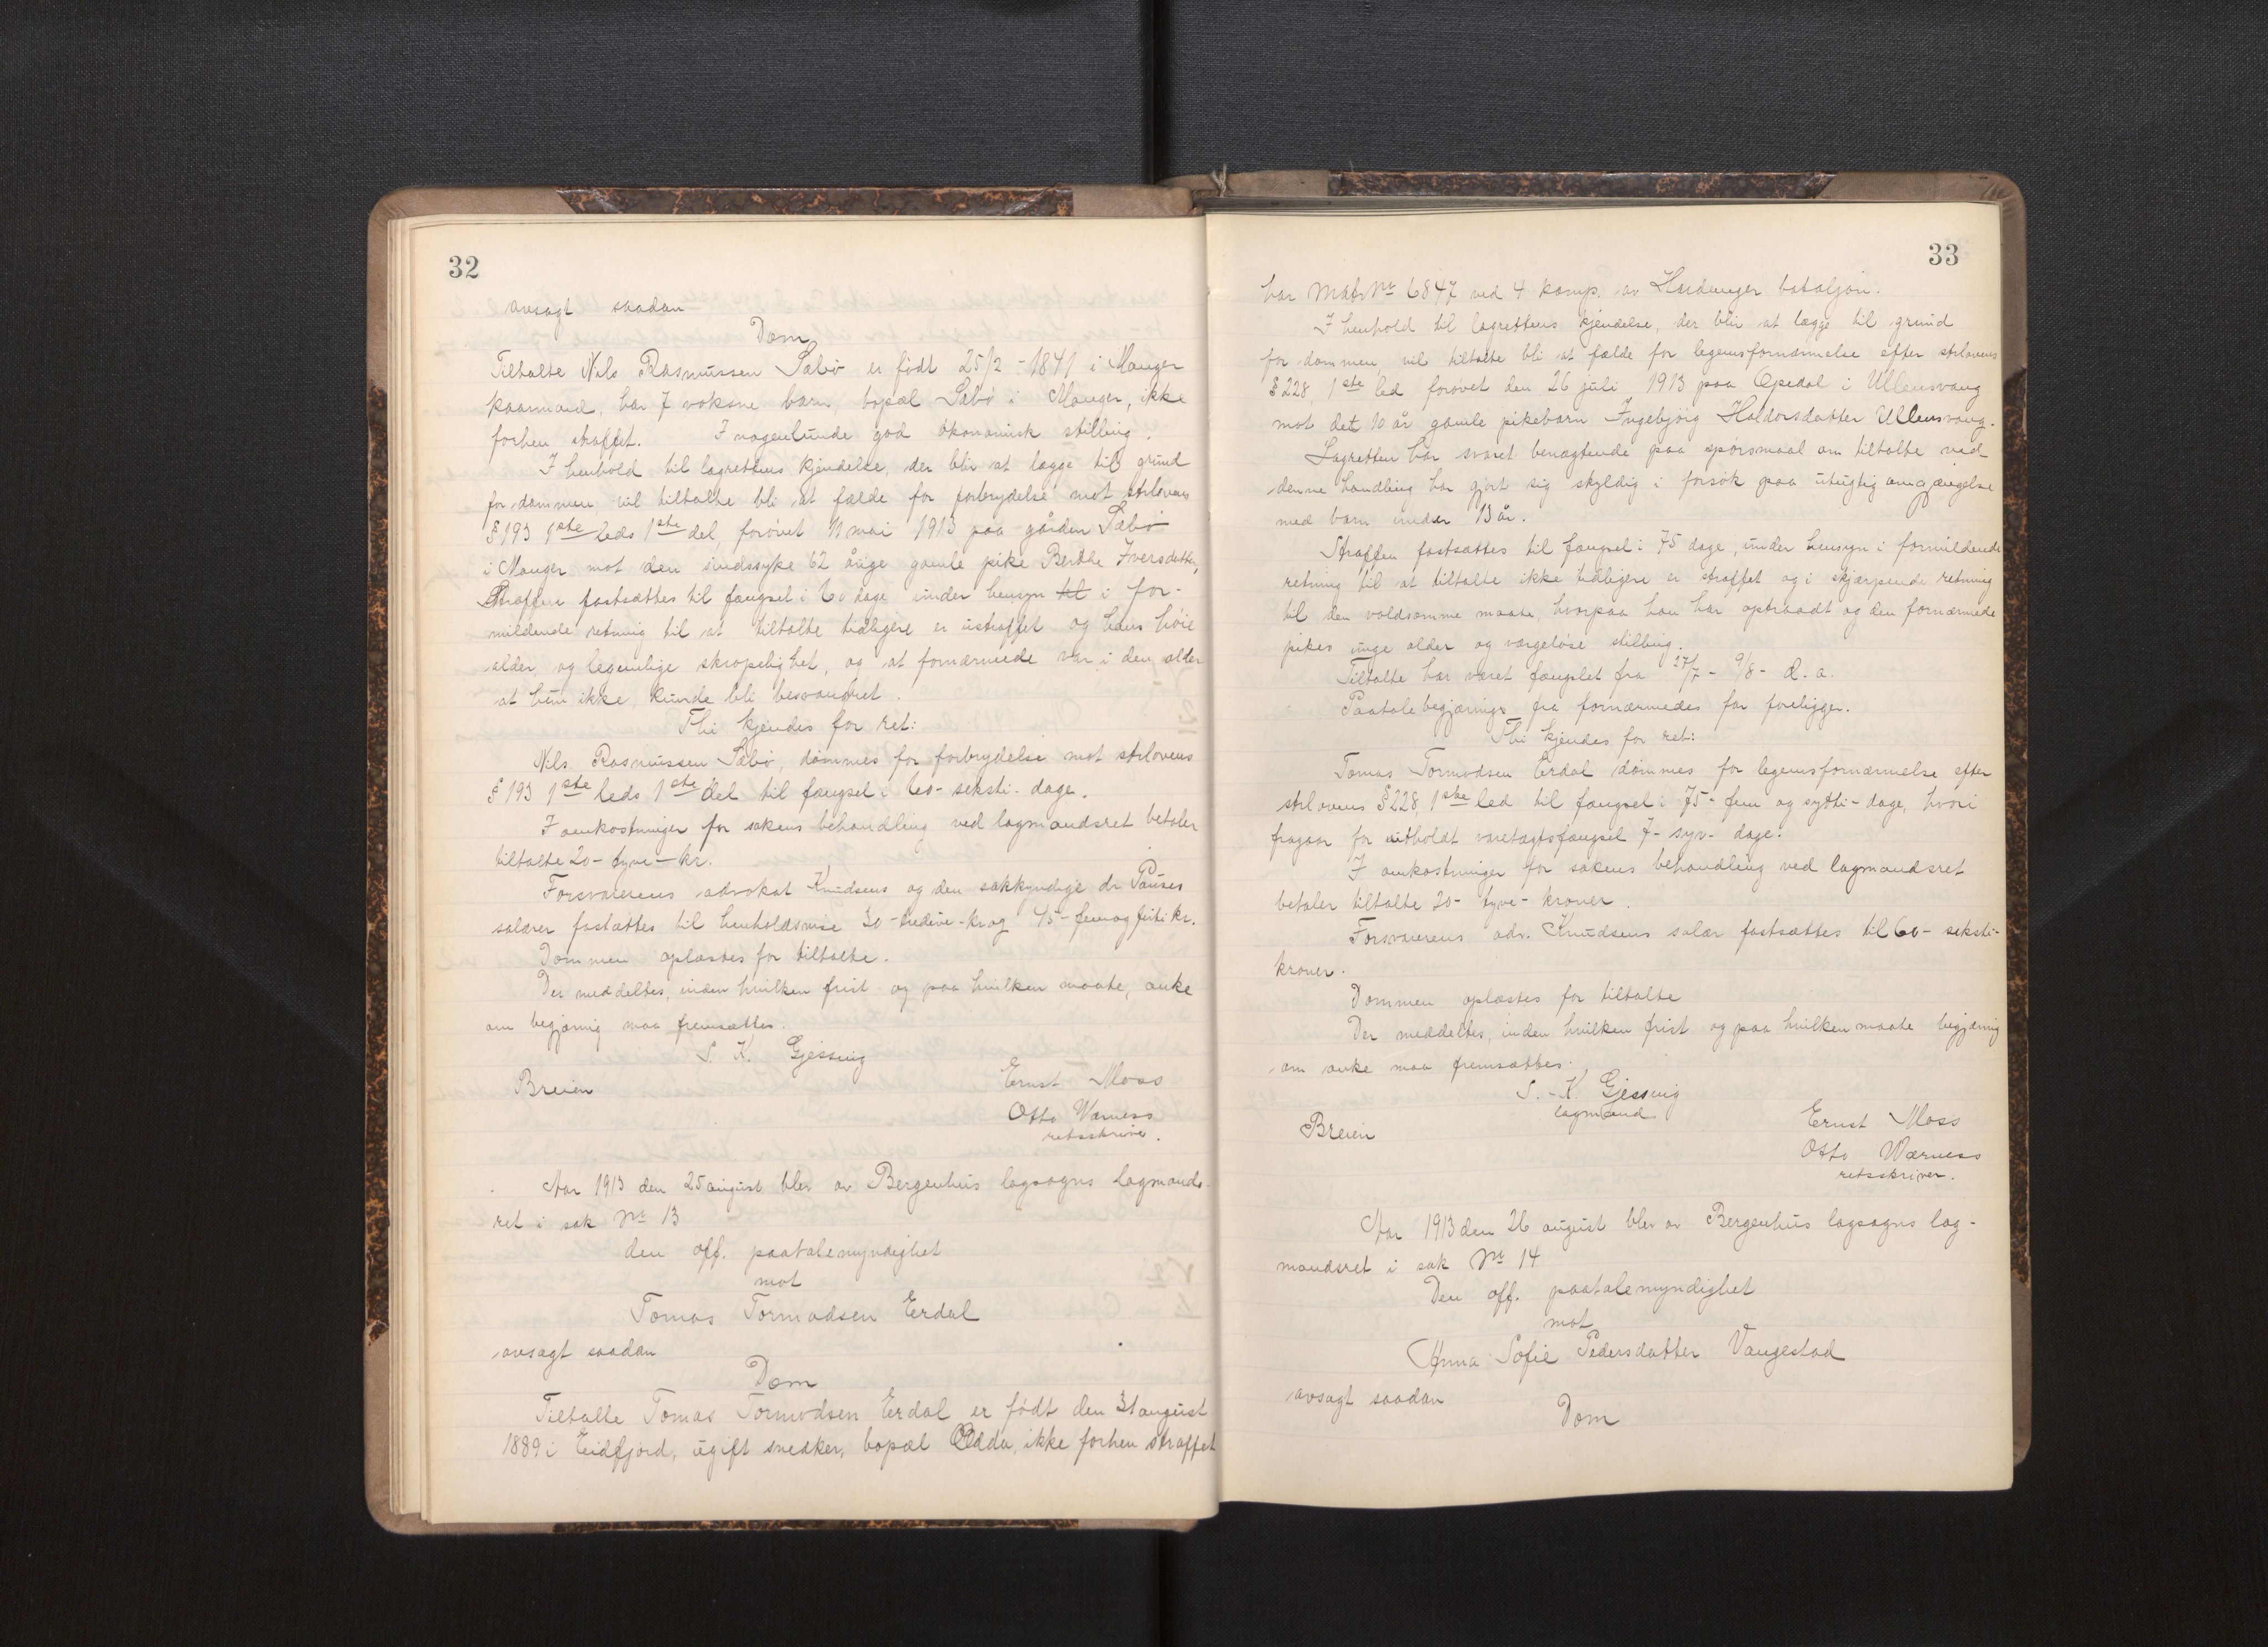 32
avsagt saadan
Dom
Tiltalte Nils Rasmussen Sæbø er født 25/2 - 1841 i Manger
kaarmand, har 7 voksne barn, bopæl Sæbø i Manger, ikke
forhen straffet. I nogenlunde god økonomisk stilling.
I henhold til lagrettens kjendelse, der blir at lægge til grund
for dommen vil tiltalte bli at fælde for forbrydelse mot strlovens
§ 193 1ste leds 1ste del, forøvet 11 mai 1913 paa gården Sæbø
i Manger mot den sindssyke 62 årige gamle pike Berthe Iversdatter,
Straffen fastsættes til fængsel i 60 dage under hensyn til i for-
mildende retning til at tiltalte tidligere er ustraffet og hans høie
alder og legemlige skrøpelighet, og at fornærmede var i den alder
at hun ikke kunde bli besvangret.
Thi kjendes for ret:
Nils Rasmussen Sæbø, dømmes for forbrydelse mot strlovens
§ 193 1ste leds 1ste del til fængsel i 60 - seksti - dage.
I omkostninger for sakens behandling ved lagmandsret betaler
tiltalte 20 - tyve - kr.
Forsvarerens advokat Knudsens og den sakkyndige dr Pauses
salærer fastættes til henholdsvise 30 - tredive - kr og 45 - femogfirti kr.
Dommen oplæstes for tiltalte.
Der meddeltes, inden hvilken frist og paa hvilken maate, anke
om begjæring maa fremsættes.
S. K. Gjessing
Breien
Ernst Moss
Otto Wærness
retsskriver.
Aar 1913 den 25 august blev av Bergenhus lagsogns Lagmands-
ret i sak Nr 13
den off. paatalemyndighet
mot
Tomas Tormodsen Erdal
avsagt saadan
Dom
Tiltalte Tomas Tormodsen Erdal er født den 31 august
1889 i Eidfjord, ugift snedker, bopæl Odda, ikke forhen straffet
33
har Matr Nr 6847 ved 4 komp. av Hardanger bataljon.
I henhold til lagrettens kjendelse, der blir at lægge til grund
for dommen, vil tiltalte bli at fælde for legemsfornærmelse efter strlovens
§ 228, 1ste led forøvet den 26 juli 1913 paa Opedal i Ullensvang
mot det 10 år gamle pikebarn Ingebjørg Haldorsdatter Ullensvang.
Lagretten har svaret benægtende paa spørsmaal om tiltalte ved
denne handling har gjort sig skyldig i forsøk paa utugtig omgjængelse
med barn under 13 år.
Straffen fastsættes til fængsel i 75 dage, under hensyn i formildende
retning til at tiltalte ikke tidligere er straffet og i skjærpende retning
til den voldsomme maate, hvorpaa han har optraadt og den fornærmede
pikes unge alder og værgeløse stilling.
Tiltalte har været fængslet fra 27/7 - 9/8 - d. a.
Paatalebegjæring fra fornærmedes far foreligger.
Thi kjendes for ret:
Tomas Tormodsen Erdal dømmes for legemsfornærmelse efter
strlovens § 228, 1ste led til fængsel i 75 - fem og sytti - dage, hvori
fragaar for utholdt varetægtsfængsel 7 - syv - dage.
I omkostninger for sakens behandling ved lagmandsret
betaler tiltalte 20 - tyve - kroner.
Forsvarerens adv. Knudsens salær fastsættes til 60 - seksti-
kroner.
Dommen oplæstes for tiltalte
Der meddeltes, inden hvilken frist og paa hvilken maate begjæring
om anke maa fremsættes.
S. K. Gjessing
lagmand
Breien
Ernst Moss
Otto Wærness
retsskriver.
Aar 1913 den 26 august blev av Bergenhus lagsogns lag-
mandsret i sak Nr 14
Den off. paatalemyndighet
mot
Anna Sofie Pedersdatter Vangestad
avsagt saadan
Dom